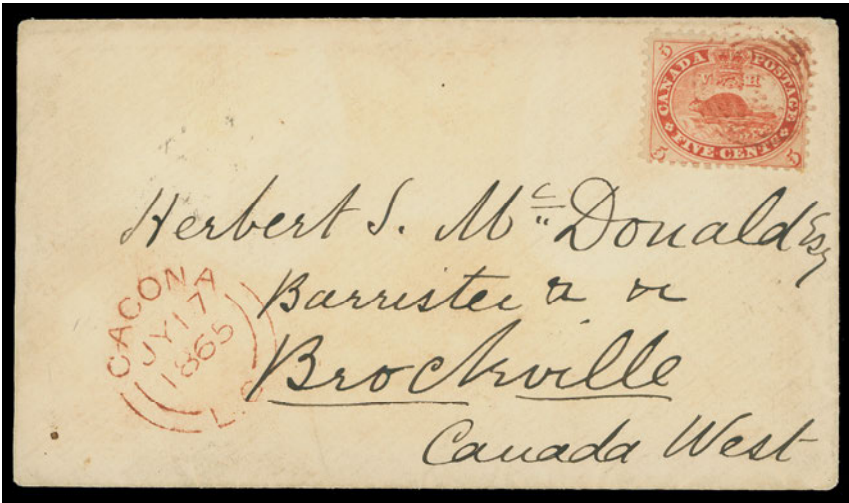 5 5
CANADA POSTAGE
V R
FIVE CENTS
5 5
Herbert S. Mc Donald Esq
Barrister &c &c
Brockville
Canada West
CACONA
JY 17
1865
L.C